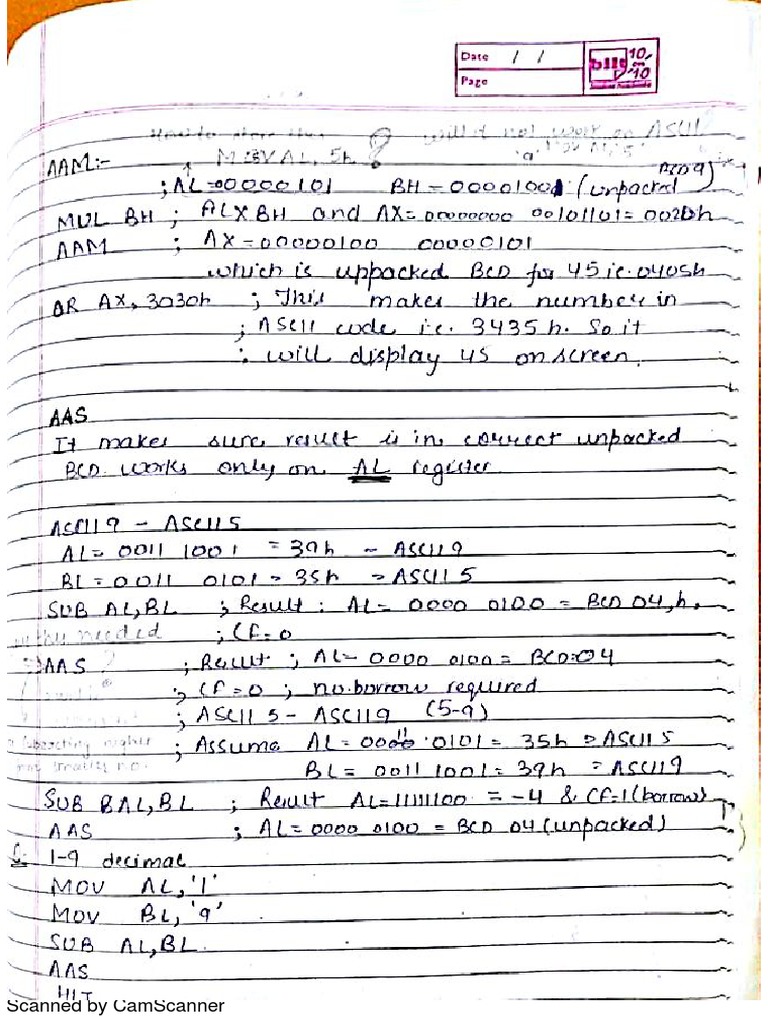 Date / /
Page
How to store this ? will it not work on ASCII
AAM:- MOV AL, 5h
; AL = 00000101 BH = 00001001 (unpacked BCD 9)
MUL BH ; AL X BH and AX = 00000000 00101101 = 002Dh
AAM ; AX = 00000100 00000101
which is uppacked BCD for 45 i.e. 0405h
OR AX, 3030h ; This makes the number in
; ASCII code i.e. 3435h. So it
: will display 45 on screen.
AAS
It makes sure result is in correct unpacked
BCD. works only on AL register
ASCII 9 - ASCII 5
AL = 0011 1001 = 39h - ASCII 9
BL = 0011 0101 = 35h = ASCII 5
SUB AL, BL ; Result : AL = 0000 0100 = BCD 04, h.
needed ; CF = 0
AAS ? ; Result ; AL = 0000 0100 = BCD 04
; CF = 0 ; no borrow required
; ASCII 5 - ASCII 9 (5-9)
subtracting higher ; Assume AL = 0011 0101 = 35h = ASCII 5
BL = 0011 1001 = 39h = ASCII 9
SUB BAL, BL ; Result AL = 11111100 = -4 & CF = 1 (borrow)
AAS ; AL = 0000 0100 = BCD 04 (unpacked)
1-9 decimal
MOV AL, '1'
MOV BL, '9'
SUB AL, BL.
AAS
HLT
Scanned by CamScanner